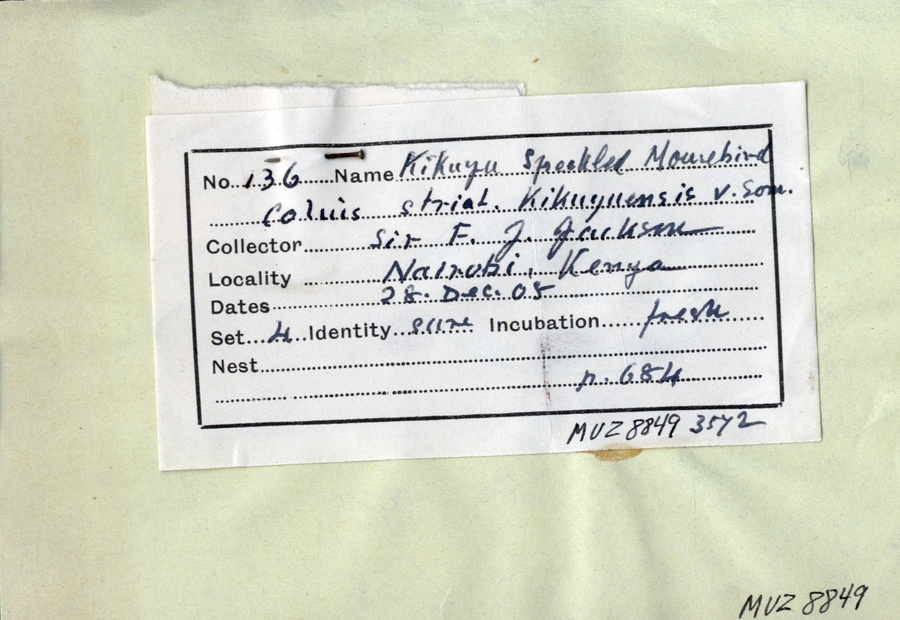 No. 136 Name Kikuyu Speckled Mousebird
Colius striat. Kikuyuensis v. Som.
Collector Sir F. J. Jackson
Locality Nairobi, Kenya
Dates 28. Dec. 05
Set 4 Identity sure Incubation fresh
Nest
p. 684
MUZ 8849 3572
MUZ 8849